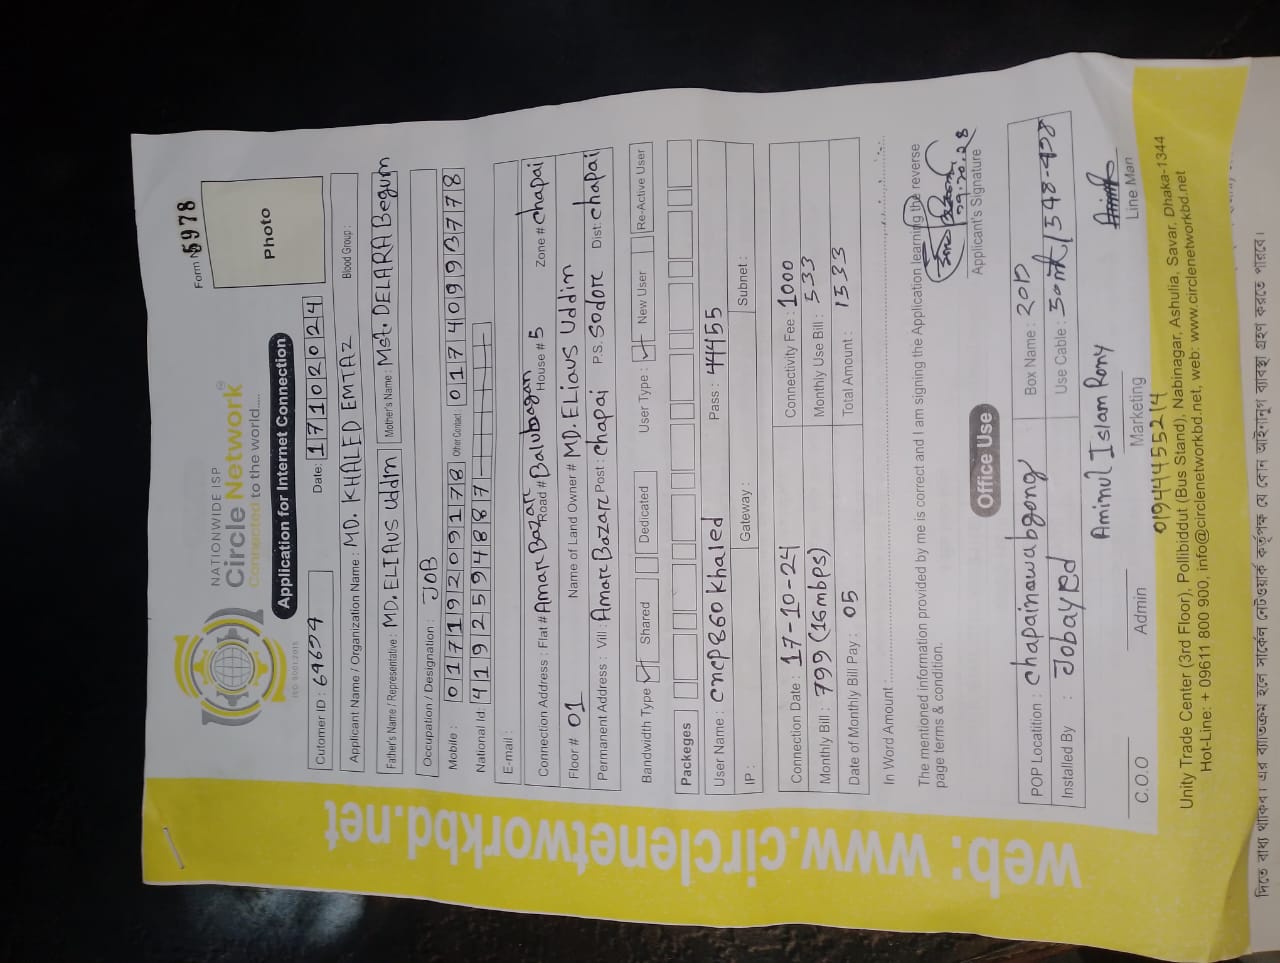 NATIONWIDE ISP
Circle Network
Connected to the world.....
ISO 9001:2015
Form 5978
Photo
Application for Internet Connection
Cutomer ID : Date: 17102024
Applicant Name / Organization Name : MD. KHALED EMTAZ Blood Group :
Father's Name / Representative : MD. ELIAUS Uddin Mother's Name : Mst. DELARA Begum
Occupation / Designation : JOB
Mobile : 01719209178 Other Contact 01740993778
National Id: 4192594887
E-mail :
Connection Address : Flat # Amar Bazar Road # Balubagan House # 5 Zone # chapai
Floor # 01 Name of Land Owner # MD. ELiaus Uddin
Permanent Address : Vill : Amar Bazar Post : Chapai P.S. Sodor Dist: chapai
Bandwidth Type Shared Dedicated User Type : New User Re-Active User
Packeges
User Name : cncp860 khaled Pass : 44455
IP : Gateway : Subnet :
Connection Date : 17-10-24 Connectivity Fee : 1000
Monthly Bill : 799 (16mbps) Monthly Use Bill : 533
Date of Monthly Bill Pay : 05 Total Amount : 1533
In Word Amount
The mentioned information provided by me is correct and I am signing the Application learning the reverse
page terms & condition.
Applicant's Signature
Office Use
POP Locatition : chapainawabgong Box Name :
Installed By : Jobayed Use Cable :
Aminul Islam Rony
C.O.O Admin Marketing Line Man
01944455214
Unity Trade Center (3rd Floor), Pollibiddut (Bus Stand), Nabinagar, Ashulia, Savar, Dhaka-1344
Hot-Line: + 09611 800 900, info@circlenetworkbd.net, web: www.circlenetworkbd.net
web: www.circlenetworkbd.net
দিতে বাধ্য থাকিব। এর ব্যতিক্রম হলে সার্কেল নেটওয়ার্ক কর্তৃপক্ষ যে কোন আইনানুগ ব্যবস্থা গ্রহণ করতে পারবে।